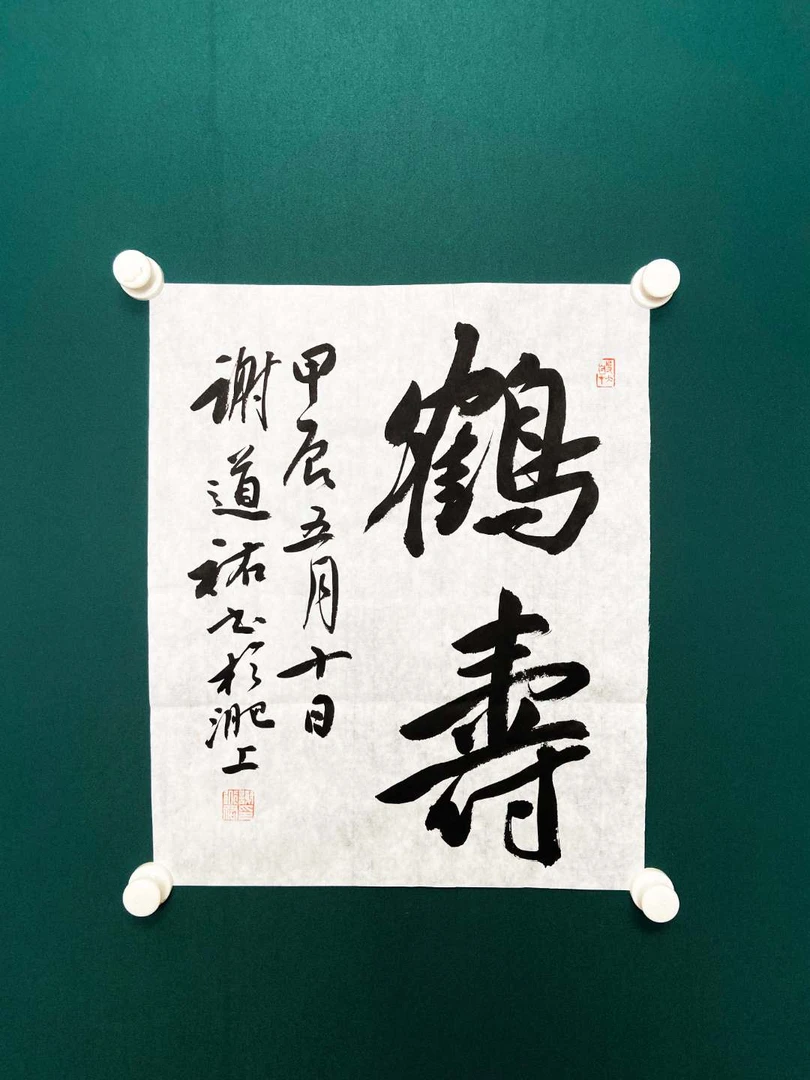 鶴壽
甲辰五月十日
謝道祐书於淝上